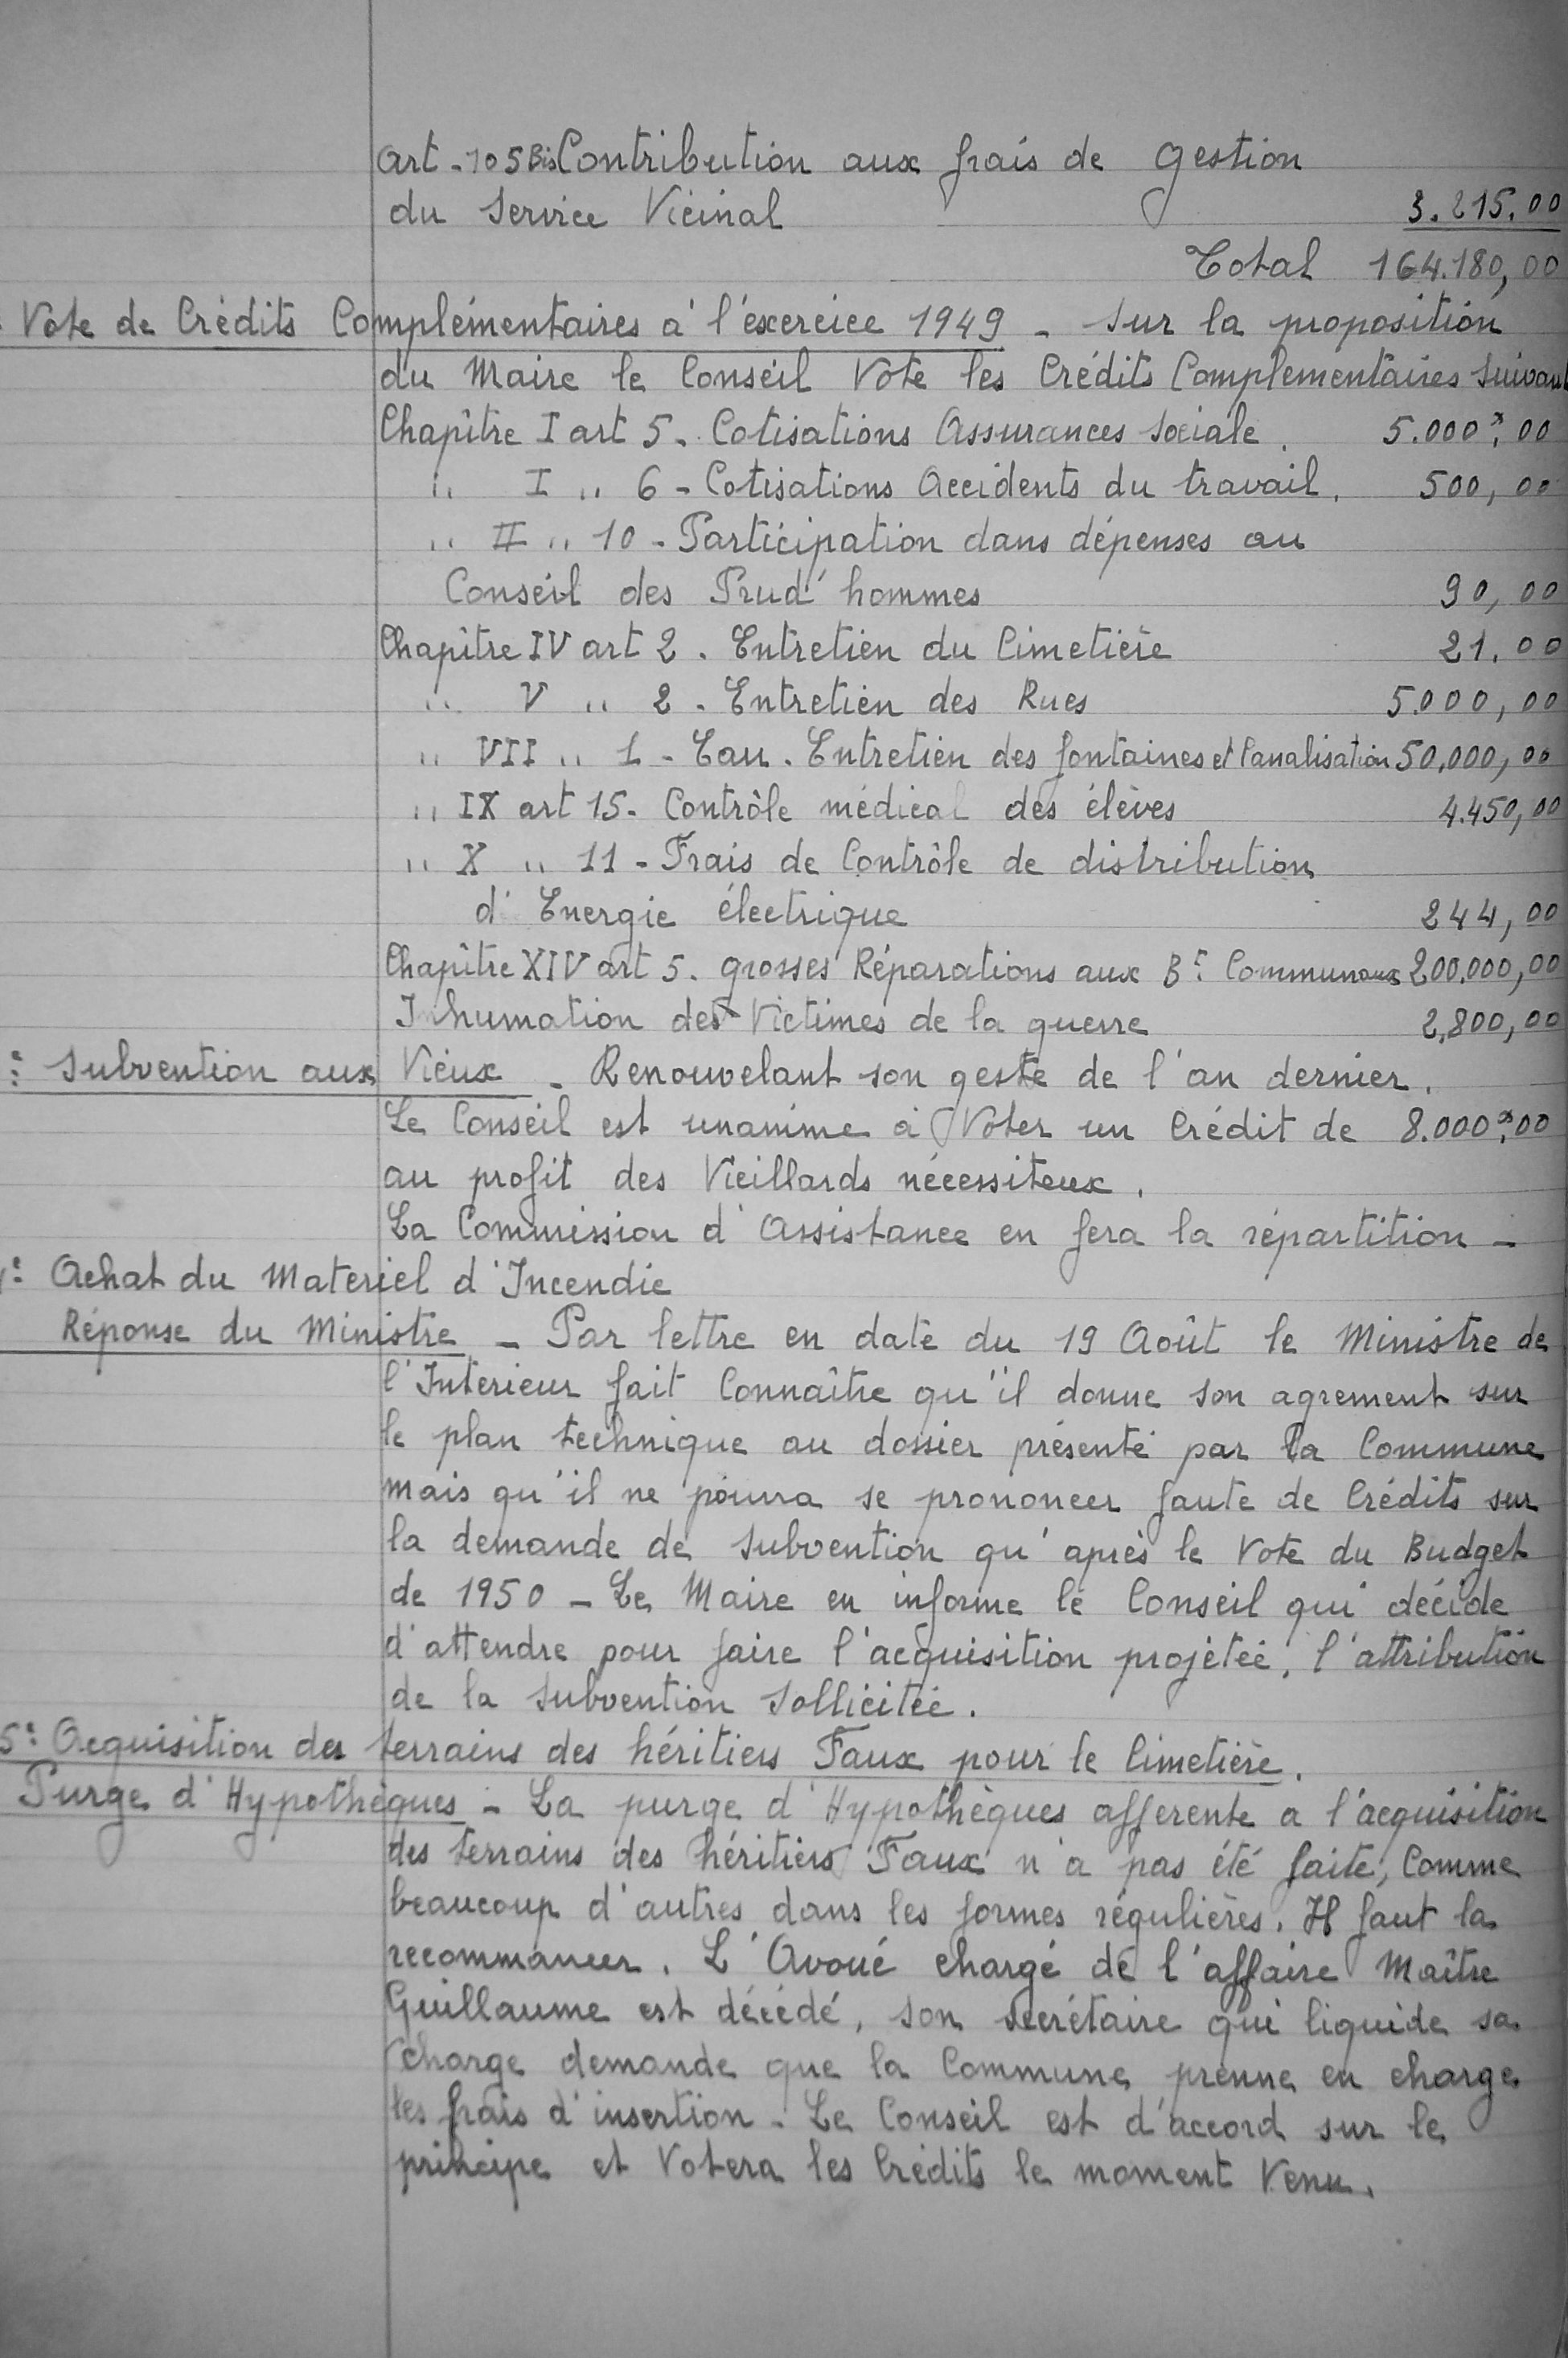 Art - 105 Bis Contribution aux frais de gestion
du Service Vicinal 3.215,00
Total 164.180,00
Vote de Crédits Complémentaires à l'éxercice 1949 - Sur la proposition
du Maire le Conseil Vote les Crédits Complementaires suivant
Chapître I art 5. Cotisations Assurances Sociale. 5.000,00
" I " 6 - Cotisations Accidents du travail. 500,00
" II " 10 - Participation dans dépenses au
Conseil des Prud'hommes 90,00
Chapître IV art 2. Entretien du Cimetière 21.00
" V " 2. Entretien des Rues 5.000,00
" VII " 1 - Eau. Entretien des fontaines et Canalisation 50,000,00
" IX art 15. Contrôle médical des élèves 4.450,00
" X " 11 - Frais de Contrôle de distribution
d'Energie électrique 244,00
Chapître XIV art 5. grosses Réparations aux Bts Communaux 200.000,00
Inhumation des Victimes de la guerre 2,800,00
: Subvention aux Vieux - Renouvelant son geste de l'an dernier.
Le Conseil est unanime à Voter un Crédit de 8.000,00
au profit des Vieillards nécessiteux.
La Commission d'Assistance en fera la répartition -
: Achat du Materiel d'Incendie
Réponse du Ministre - Par lettre en date du 19 Août le Ministre de
l'Interieur fait Connaître qu'il donne son agrement sur
le plan technique au dossier présenté par la Commune
mais qu'il ne pourra se prononcer faute de Crédits sur
la demande de Subvention qu'après le Vote du Budget
de 1950 - Le Maire en informe le Conseil qui décide
d'attendre pour faire l'acquisition projetée, l'attribution
de la Subvention Sollicitée.
5: Acquisition des terrains des héritiers Faux pour le Cimetière.
Purge d'Hypothèques - La purge d'Hypothèques afferente a l'acquisition
des terrains des héritiers Faux n'a pas été faite, Comme
beaucoup d'autres dans les formes régulières. Il faut la
recommancer. L'Avoué chargé de l'affaire Maître
Guillaume est décédé, son secrétaire qui liquide sa
charge demande que la Commune prenne en charge
les frais d'insertion - Le Conseil est d'accord sur le
principe et Votera les Crédits le moment Venu.